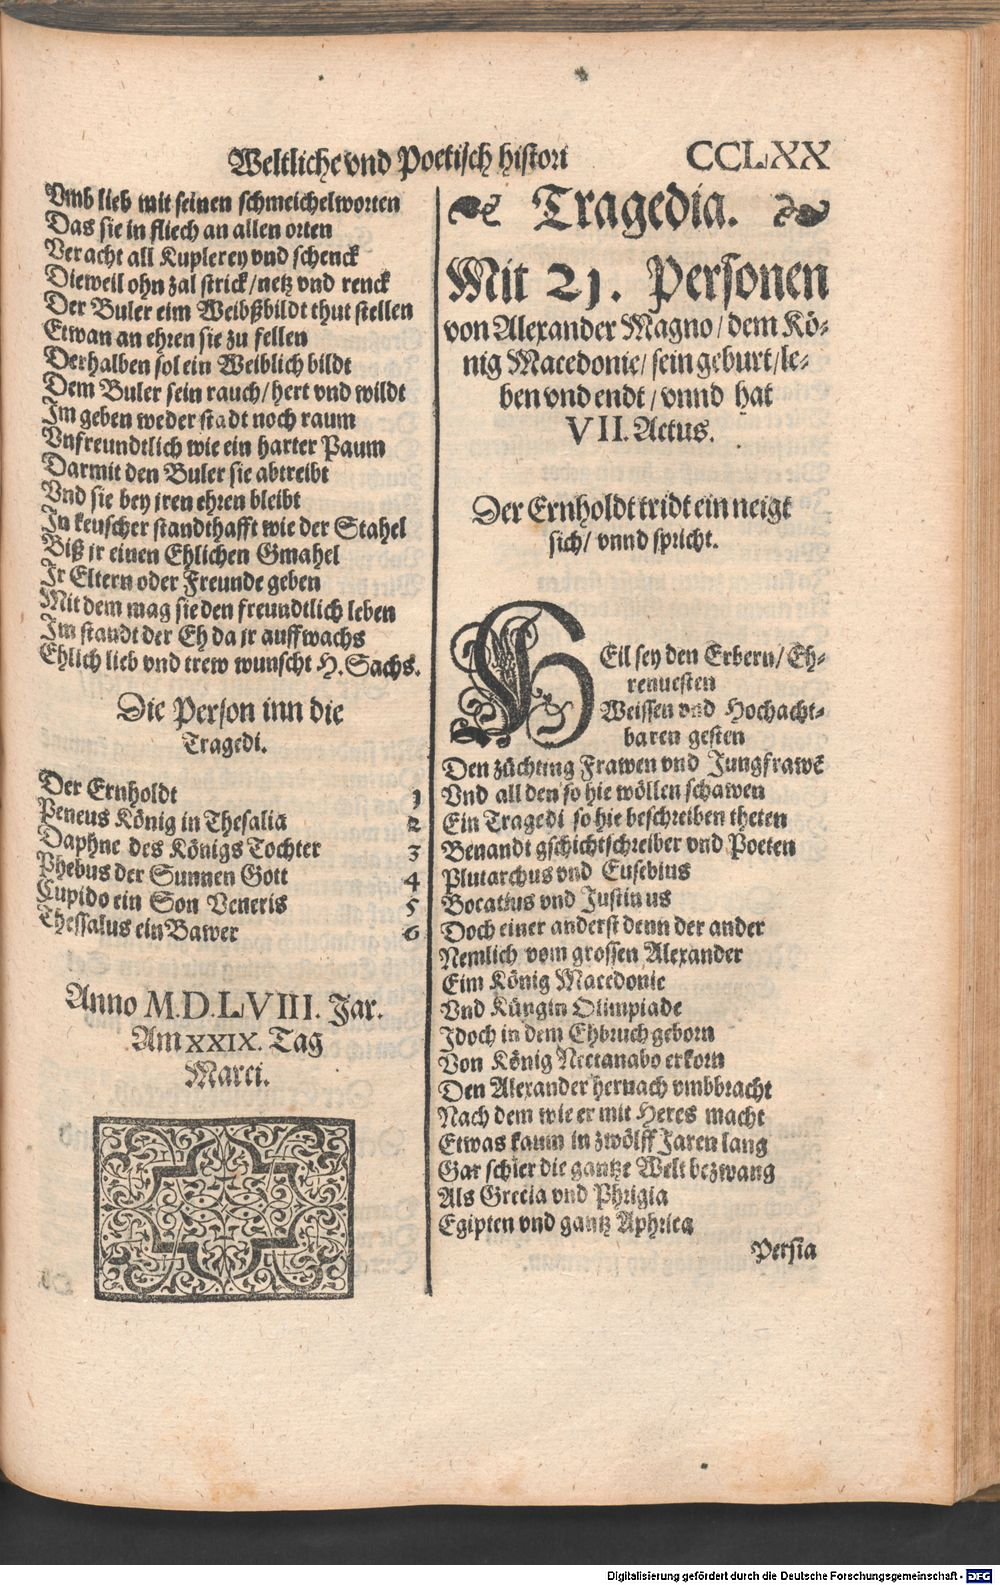 Weltliche vnd Poetisch histori CCLXX
Vmb lieb mit seinen schmeichelworten
Das sie in fliech an allen orten
Veracht all Kuplerey vnd schenck
Dieweil ohn zal strick/netz vnd renck
Der Buler eim Weibßbildt thut stellen
Etwan an ehren sie zu fellen
Derhalben sol ein Weiblich bildt
Dem Buler sein rauch/hert vnd wildt
Im geben weder stadt noch raum
Vnfreundtlich wie ein harter Paum
Darmit den Buler sie abtreibt
Vnd sie bey jren ehren bleibt
In keuscher standthafft wie der Stahel
Biß jr einen Ehlichen Gmahel
Ir Eltern oder Freunde geben
Mit dem mag sie den freundtlich leben
Im standt der Eh da jr auff wachs
Ehlich lieb vnd trew wunscht H. Sachs.
Die Person inn die
Tragedi.
Der Ernholdt 1
Peneus König in Thesalia 2
Daphne des Königs Tochter 3
Phebus der Sunnen Gott 4
Cupido ein Son Veneris 5
Thessalus ein Bawer 6
Anno M.D.LVIII. Jar.
Am XXIX. Tag
Marci.
Tragedia.
Mit 21. Personen
von Alexander Magno/dem Kö-
nig Macedonie/sein geburt/le-
ben vnd endt/vnnd hat
VII. Actus.
Der Ernholdt tridt ein neigt
sich/vnnd spricht.
HEil sey den Erbern/Eh-
renuesten
Weissen vnd Hochacht-
baren gesten
Den züchting Frawen vnd Jungfrawē
Vnd all den so hie wöllen schawen
Ein Tragedi so hie beschreiben theten
Benandt gschichtschreiber vnd Poeten
Plutarchus vnd Eusebius
Bocatius vnd Justinus
Doch einer anderst denn der ander
Nemlich vom grossen Alexander
Eim König Macedonie
Vnd Küngin Olimpiade
Jdoch in dem Ehbruch geborn
Von König Nectanabo erkorn
Den Alexander hernach vmbbracht
Nach dem wie er mit Heres macht
Etwas kaum in zwölff Jaren lang
Gar schier die gantze Welt bezwang
Als Grecia vnd Phrigia
Egipten vnd gantz Aphrica
Persia
Digitalisierung gefördert durch die Deutsche Forschungsgemeinschaft - DFG